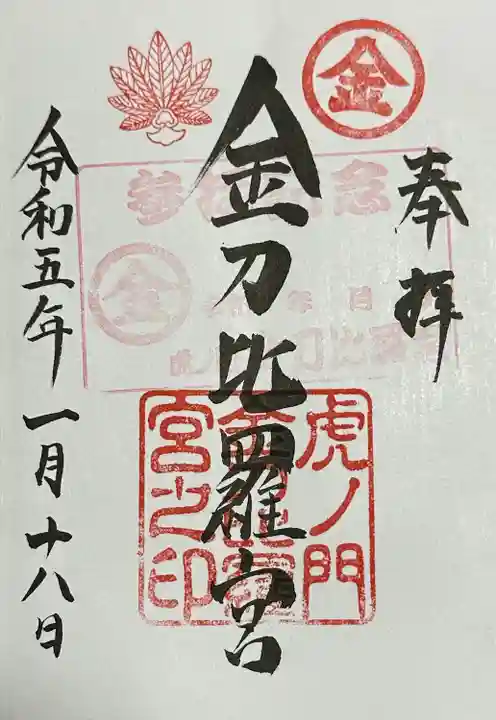 奉拝
金
金刀比羅宮
虎ノ門
金刀比羅
宮之印
令和五年一月十八日
金